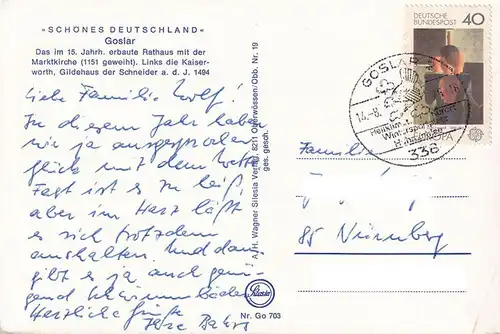 »SCHÖNES DEUTSCHLAND«
Goslar
Das im 15. Jahrh. erbaute Rathaus mit der
Marktkirche (1151 geweiht). Links die Kaiser-
worth, Gildehaus der Schneider a. d. J. 1494
Liebe Familie Wolf!
In diesem Jahr haben
wir ja ausgesprochen
Glück mit dem Wetter
Fast ist es zu heiß,
aber im Harz läßt
es sich trotzdem
aushalten. Und dann
gibt es ja auch genü-
gend Schwimmbäder
Herzliche Grüße
Ihre
A./H. Wagner Silesia Verlag, 8211 Oberwössen/Obb. Nr. 19
ges. gesch.
Silesia
Nr. Go 703
DEUTSCHE
BUNDESPOST
40
GOSLAR
14.-8.
Heilklima
Kurort
Wintersport
Hahnenklee
338
Familie
85 Nürnberg